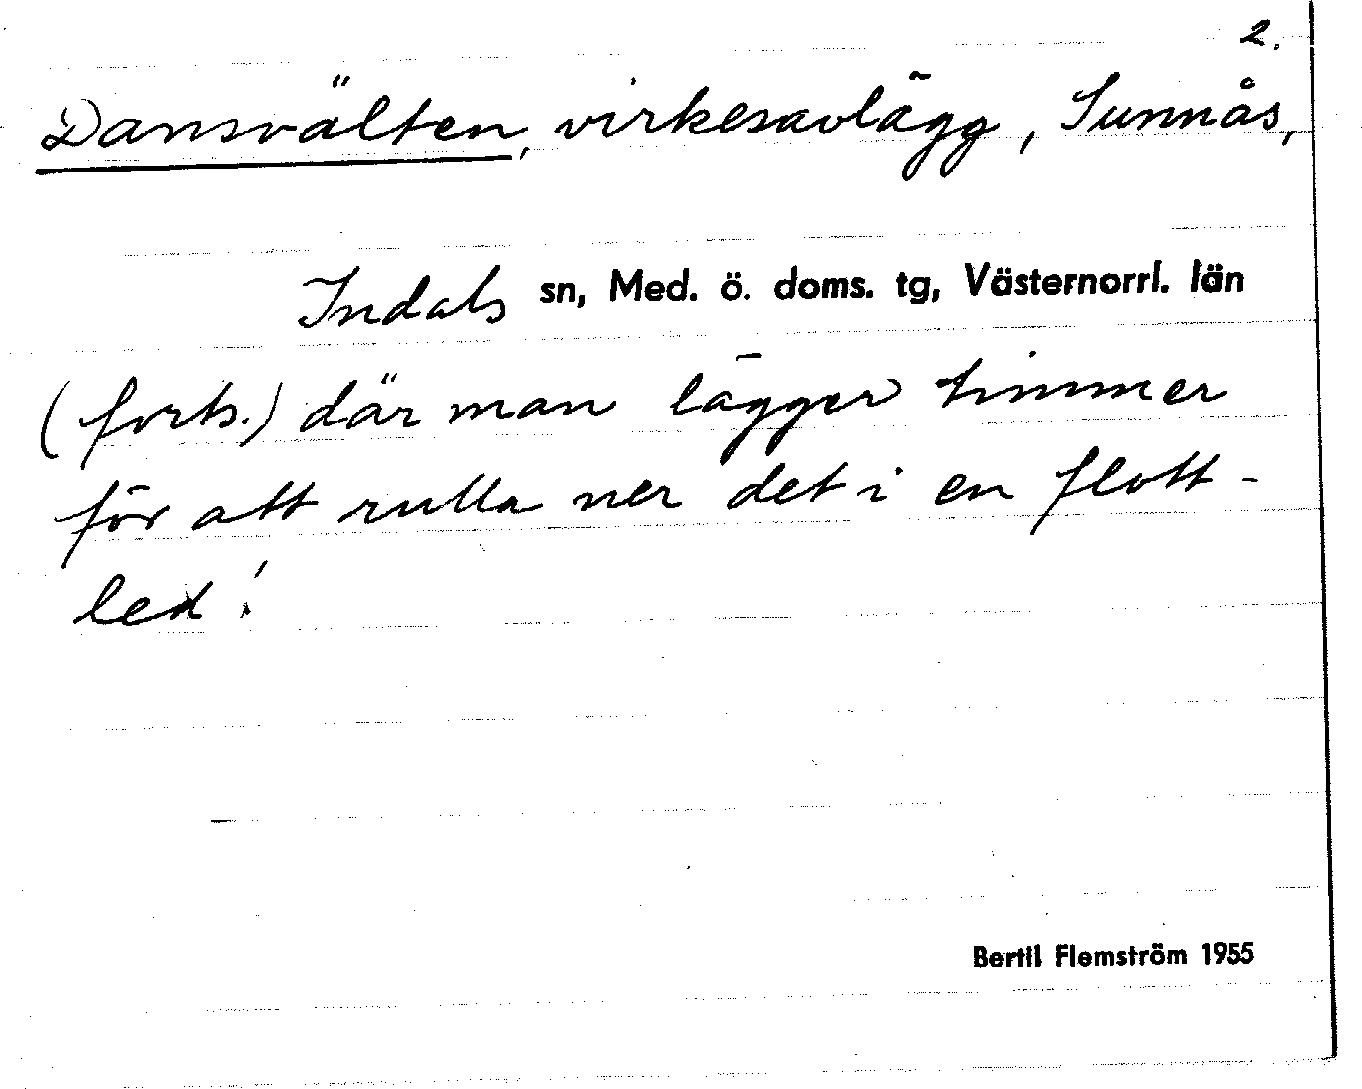 2.
Dansvälten, virkesavlägg, Sunnås,
Indals sn, Med. ö. doms. tg, Västernorrl. län
(forts.) där man lägger timmer
för att rulla ner det i en flott-
led!
Bertil Flemström 1955